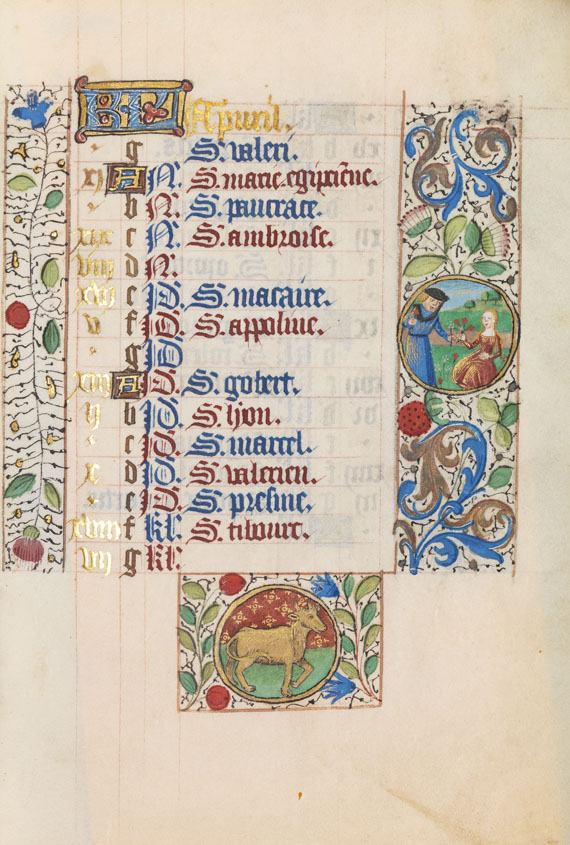 KL Apvril.
g S. valeri.
xj A N. S. marie egiptiēne.
b N. S. pancrace.
xix c N. S. ambroise.
viij d N.
xvj e N. S. macaire.
v f N. S. appoline.
g ID
xiij A ID. S. gobert.
ij b ID. S. lyon.
c ID. S. marcel.
x d ID. S. valerien.
e ID. S. presine.
xviij f kl. S. tiburt.
vij g kl.